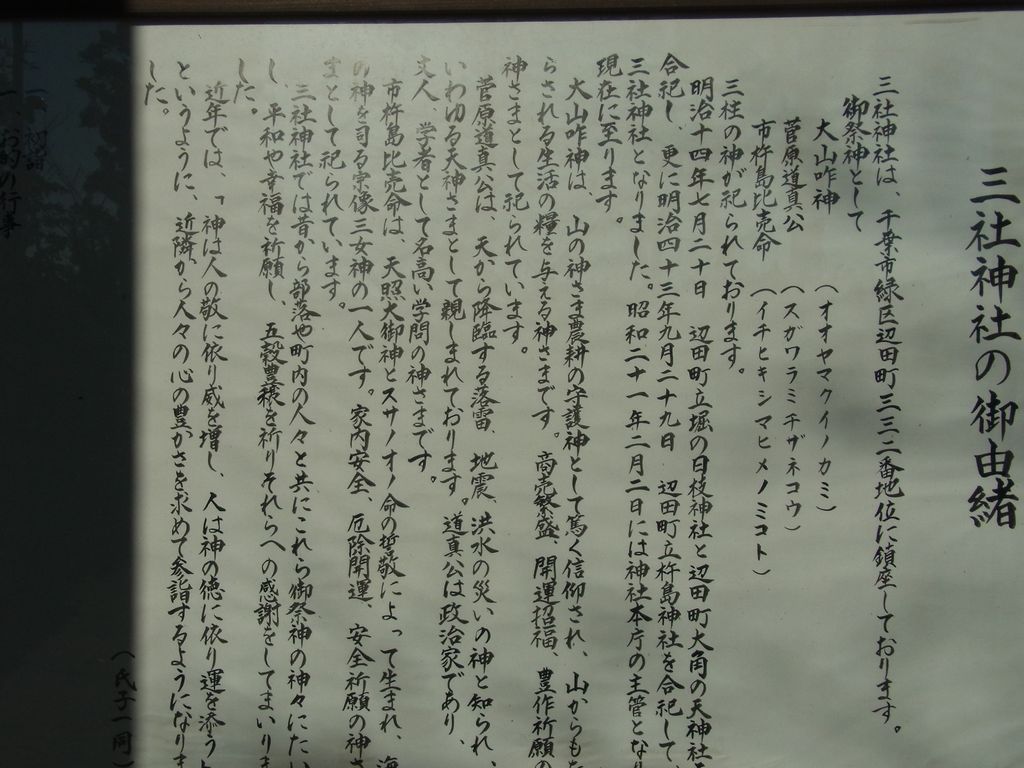 三社神社の御由緒
三社神社は、千葉市緑区辺田町三三二番地位に鎮座しております。
御祭神として
大山咋神　（オオヤマクイノカミ）
菅原道真公　（スガワラミチザネコウ）
市杵島比売命　（イチヒキシマヒメノミコト）
三柱の神が祀られております。
明治十四年七月二十日　辺田町立堀の日枝神社と辺田町大角の天神社を
合祀し、更に明治四十三年九月二十九日　辺田町立杵島神社を合祀して、
三社神社となりました。昭和二十一年二月二日には神社本庁の主管となり
現在に至ります。
大山咋神は、山の神さま農耕の守護神として篤く信仰され、山からもた
らされる生活の糧を与える神さまです。商売繁盛　開運招福、豊作祈願の
神さまとして祀られています。
菅原道真公は、天から降臨する落雷、地震、洪水の災いの神と知られ、
いわゆる天神さまとして親しまれております。道真公は政治家であり、
文人、学者として名高い学問の神さまです。
市杵島比売命は、天照大御神とスサノオノ命の誓敬によって生まれ、海
の神を司る宗像三女神の一人です。家内安全、厄除開運、安全祈願の神さ
まとして祀られています。
三社神社では昔から部落や町内の人々と共にこれら御祭神の神々にたい
し、平和や幸福を祈願し、五穀豊穣を祈りそれらへの感謝をしてまいりま
した。
近年では、「神は人の敬に依り威を増し、人は神の徳に依り運を添う」
というように、近隣から人々の心の豊かさを求めて参詣するようになりま
した。
（氏子一同）
一、初詣
一、お的の行事